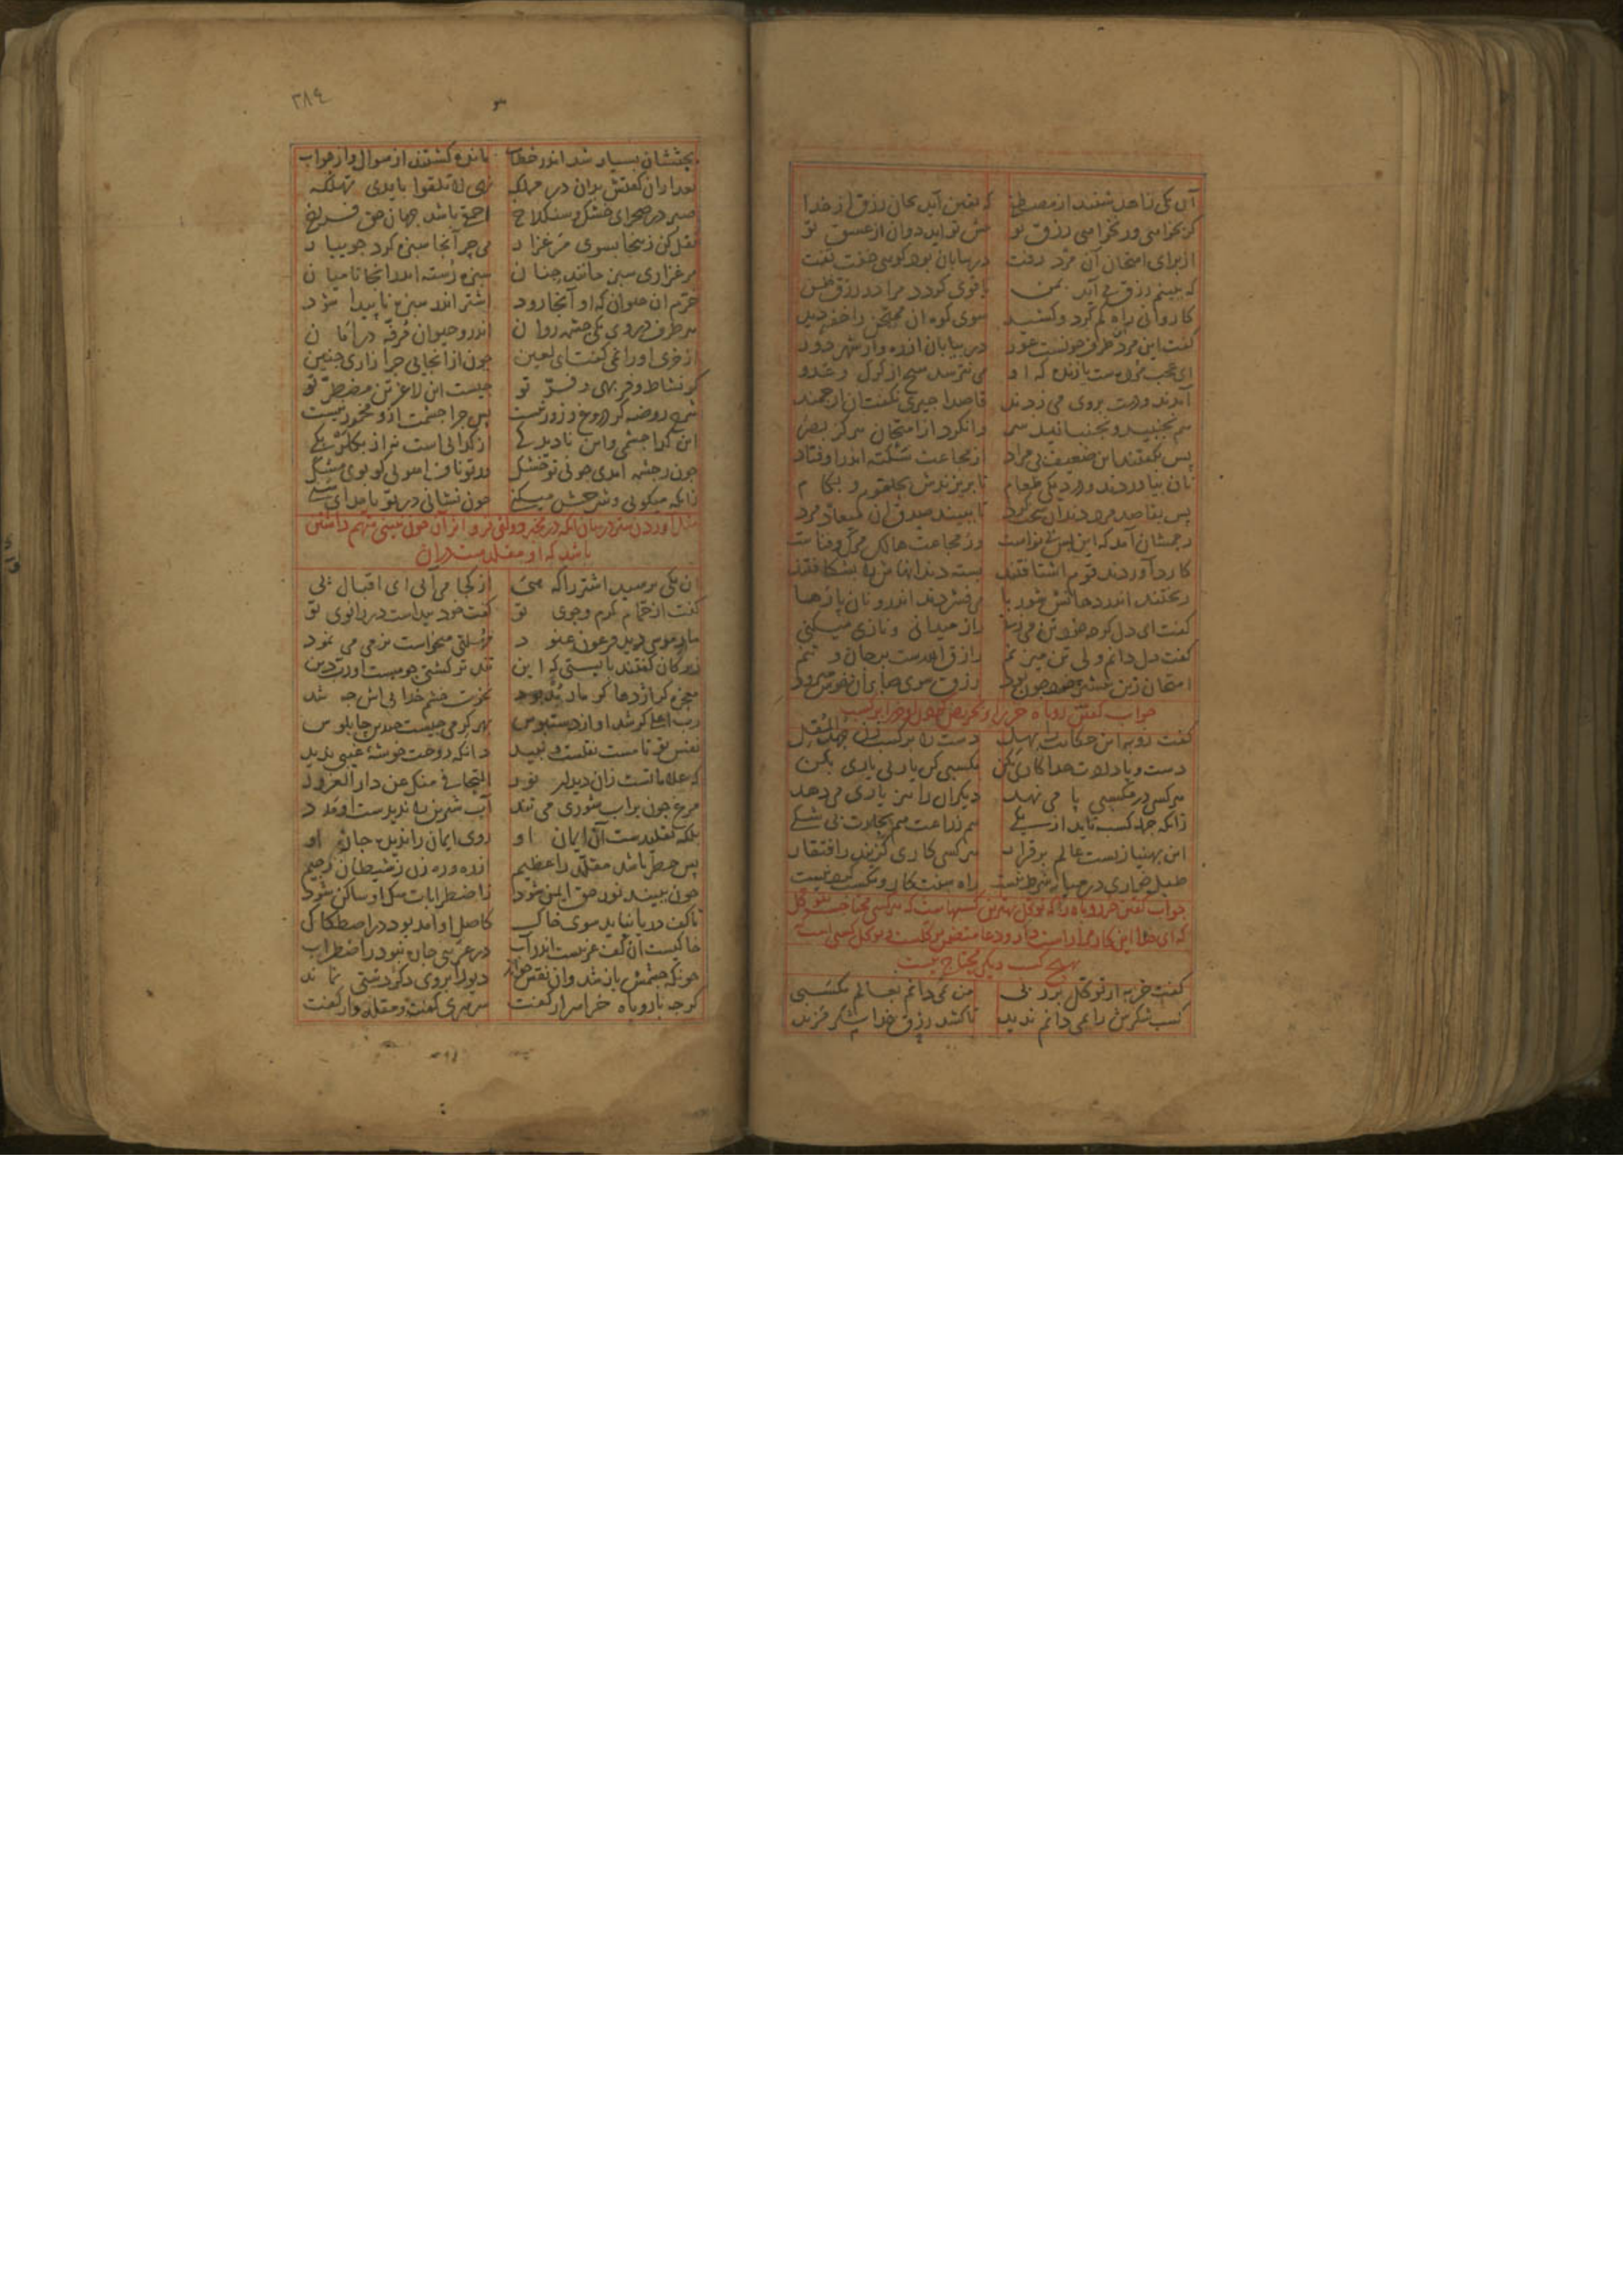 آن یکی زاهد شنید از مصطفی که یقین آید بجان رزق از خدا
کر بخواهی ور نخواهی رزق تو پیش تو آید دوان از عشق تو
از برای امتحان آن مرد رفت در بیابان نزد کوهی خفت تفت
که ببینم رزق می آید بمن تا قوی کردد مرا در رزق ظن
کاروانی راه کم کرد و کشید سوی کوه آن ممتحن را خفته دید
کفت این مرد این طرف چونست عور در بیابان از ره و از شهر دور
ای عجب مرده است یا زنده که او می نترسد هیچ از کرک و عدو
آمدند و دست بر وی می زدند قاصدا چیزی نکفت آن ارجمند
هم نجنبید و نجنبانید سر وا نکرد از امتحان هرکز بصر
پس بکفتند این ضعیف بی مراد از مجاعت سکته اندر اوفتاد
نان بیاوردند و در دیکی طعام تا بریزندش بحلقوم و بکام
پس بقاصد مرد دندان سخت کرد تا ببیند صدق آن میعاد مرد
رحمشان آمد که این بس بی نواست وز مجاعت هالک مرک و فناست
کارد آوردند قوم اشتافتند بسته دندانهاش را بشکافتند
ریختند اندر دهانش شوربا می فشردند اندرو نان پارها
کفت ای دل کرچه خود تن می زنی راز میدانی و نازی میکنی
کفت دل دانم ولی تن میزنم رازق الله است بر جان و تنم
امتحان زین بیشتر خود چون بود رزق سوی صابران خوش میرود
جواب کفتن روباه خر را و تحریض کردن او خر را بر کسب
کفت روبه این حکایت را بهل دست را بر کسب زن جهد المقل
دست دادست خدا کاری بکن مکسبی کن یاری یاری بکن
هر کسی در مکسبی پا می نهد دیکران را نیز یاری می دهد
زانکه جمله کسب ناید از یکی هم زراعت هم تجارت بی شکی
این بهنبازیست عالم بر قرار هر کسی کاری کزیند ز افتقار
طبل خواری در میانه شرط نیست راه سنت کار و مکسب کردنیست
جواب کفتن خر روباه را که توکل بهترین کسبهاست که هر کسی محتاجست بتوکل
که ای خدا این کار مرا راست دار و دعا متضمن توکلست و توکل کسبی است
بهیچ کسب دیکر محتاج نیست
کفت خر به از توکل بر ربی من نمی دانم بعالم مکسبی
کسب شکرش را نمی دانم ندید تا کشد رزق خدا شکر مزید
٣٨٤
بحثشان بسیار شد اندر خطاب مانده کشتند از سوال و از جواب
بعد از آن کفتش بدان در مهلکه نهی لا تلقوا بایدی تهلکه
صبر در صحرای خشک و سنکلاخ احمقی باشد جهان حق فراخ
نقل کن زینجا بسوی مرغزار می چر آنجا سبزه کرد جویبار
مرغزاری سبز مانند جنان سبزه رسته اندر آنجا تا میان
خرم آن حیوان که او آنجا رود اشتر اندر سبزه ناپیدا شود
هر طرف در وی یکی چشمه روان اندرو حیوان مرفه در امان
از خری او را نمی کفت ای لعین چون از آنجایی چرا زاری چنین
کو نشاط و فربهی و فر تو چیست این لاغر تن مضطر تو
شرح روضه کر دروغ و زور نیست پس چرا چشمت ازو مخمور نیست
این کدا چشمی و این نادیدکی از کدایی است نه از بکلربکی
چون ز چشمه آمدی چونی تو خشک ور تو ناف آهویی کو بوی مشک
زانکه میکویی و شرحش میکنی چون نشانی در تو نامد ای سنی
مثل آوردن اشتر در بیان آنکه در مخبر دولتی فر و اثر آن چون نبینی متهم داشتن
باشد که او مقلدست در آن
آن یکی پرسید اشتر را که هی از کجا می آیی ای اقبال پی
کفت از حمام کرم کوی تو کفت خود پیداست در زانوی تو
مار موسی دید فرعون عنود مهلتی میخواست نرمی می نمود
زیرکان کفتند بایستی که این تندتر کشتی چو هست او رب دین
معجزه کر اژدها کر مار بد نخوت خشم خدایی اش چه شد
رب اعلی کر شد او اندر جلوس بهر کرمی چیست این چاپلوس
نفس تو تا مست نقلست و نبید دانکه روحت خوشه غیبی ندید
که علاماتست زان دیدار نور التجافی منک عن دار الغرور
مرغ چون بر آب شوری می تند آب شیرین را ندیدست او مدد
بلکه تقلیدست آن ایمان او روی ایمان را ندیده جان او
پس خطر باشد مقلد را عظیم از ره و ره زن ز شیطان رجیم
چون ببیند نور حق ایمن شود ز اضطرابات شک او ساکن شود
تا کف دریا نیاید سوی خاک کاصل او آمد بود در اصطکاک
خاکیست آن کف غریبست اندر آب در غریبی چاره نبود ز اضطراب
چونکه چشمش باز شد وان نقش خواند دیو را بر وی دکر دستی نماند
کرچه با روباه خر اسرار کفت سرسری کفت و مقلدوار کفت